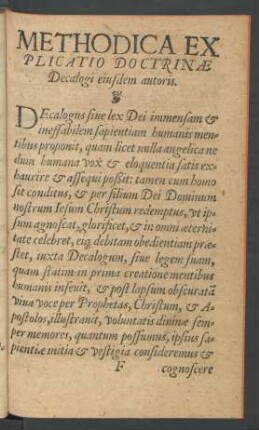 METHODICA EX
PLICATIO DOCTRINÆ
Decalogi eiusdem autoris.
DEcalogus siue lex Dei immensam &
ineffabilem sapientiam humanis men
tibus proponit, quam licet nulla angelica ne
dum humana vox & eloquentia satis ex-
haurire & assequi poßit: tamen cum homo
sit conditus, & per filium Dei Dominum
nostrum Iesum Christum redemptus, vt ip-
sum agnoscat, glorificet, & in omni æterni-
tate celebret, eiq; debitam obedientiam præ-
stet, iuxta Decalogum, siue legem suam,
quam statim in prima creatione mentibus
humanis inseuit, & post lapsum obscuratã
viua voce per Prophetas, Christum, & A-
postolos, illustrauit, voluntatis diuinæ sem-
per memores, quantum possumus, ipsius sa-
pientiæ initia & vestigia consideremus &
F cognoscere